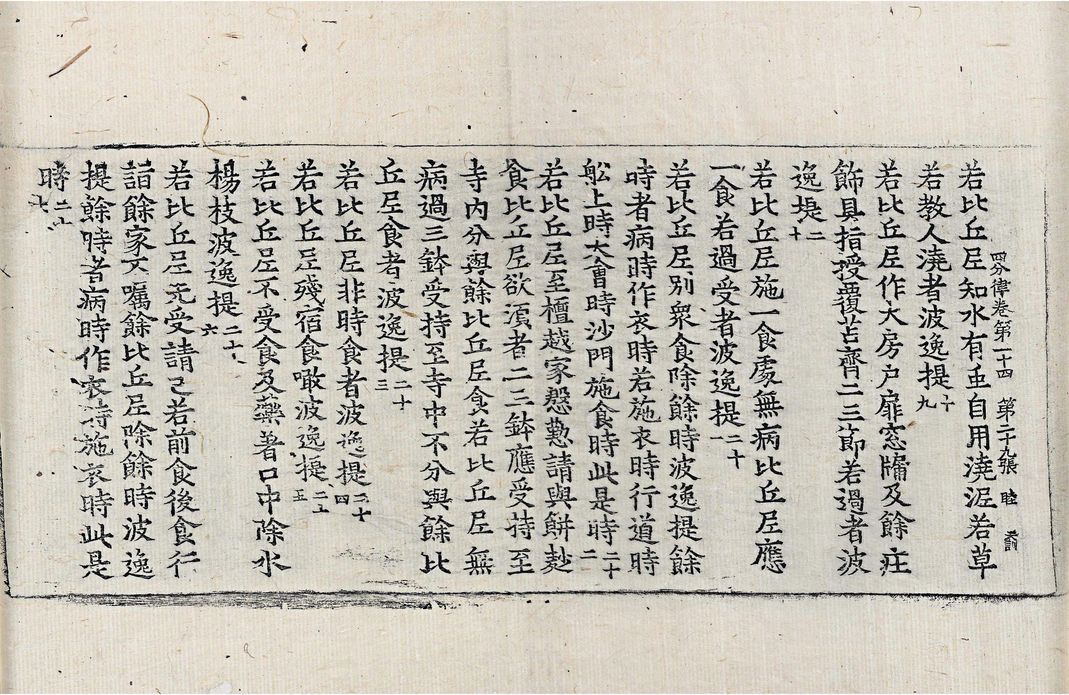 四分律卷第一十四 第二十九張 睦
若比丘𡰱知水有虫自用澆泥若草
若教人澆者波逸提十九
若比丘𡰱作大房户扉窓牖及餘庄
飾具指授覆苫齊二三節若過者波
逸提二十
若比丘𡰱施一食處無病比丘𡰱應
一食若過受者波逸提二十一
若比丘𡰱別衆食除餘時波逸提餘
時者病時作衣時若施衣時行道時
舩上時大會時沙門施食時此是時二十二
若比丘𡰱至檀越家慇懃請與餠麨
食比丘𡰱欲湏者二三鉢應受持至
寺内分與餘比丘𡰱食若比丘𡰱無
病過三鉢受持至寺中不分與餘比
丘𡰱食者波逸提二十三
若比丘𡰱非時食者波逸提二十四
若比丘𡰱殘宿食噉波逸提二十五
若比丘𡰱不受食及藥著口中除水
楊枝波逸提二十六
若比丘𡰱先受請已若前食後食行
詣餘家不囑餘比丘𡰱除餘時波逸
提餘時者病時作衣時施衣時此是
時二十七